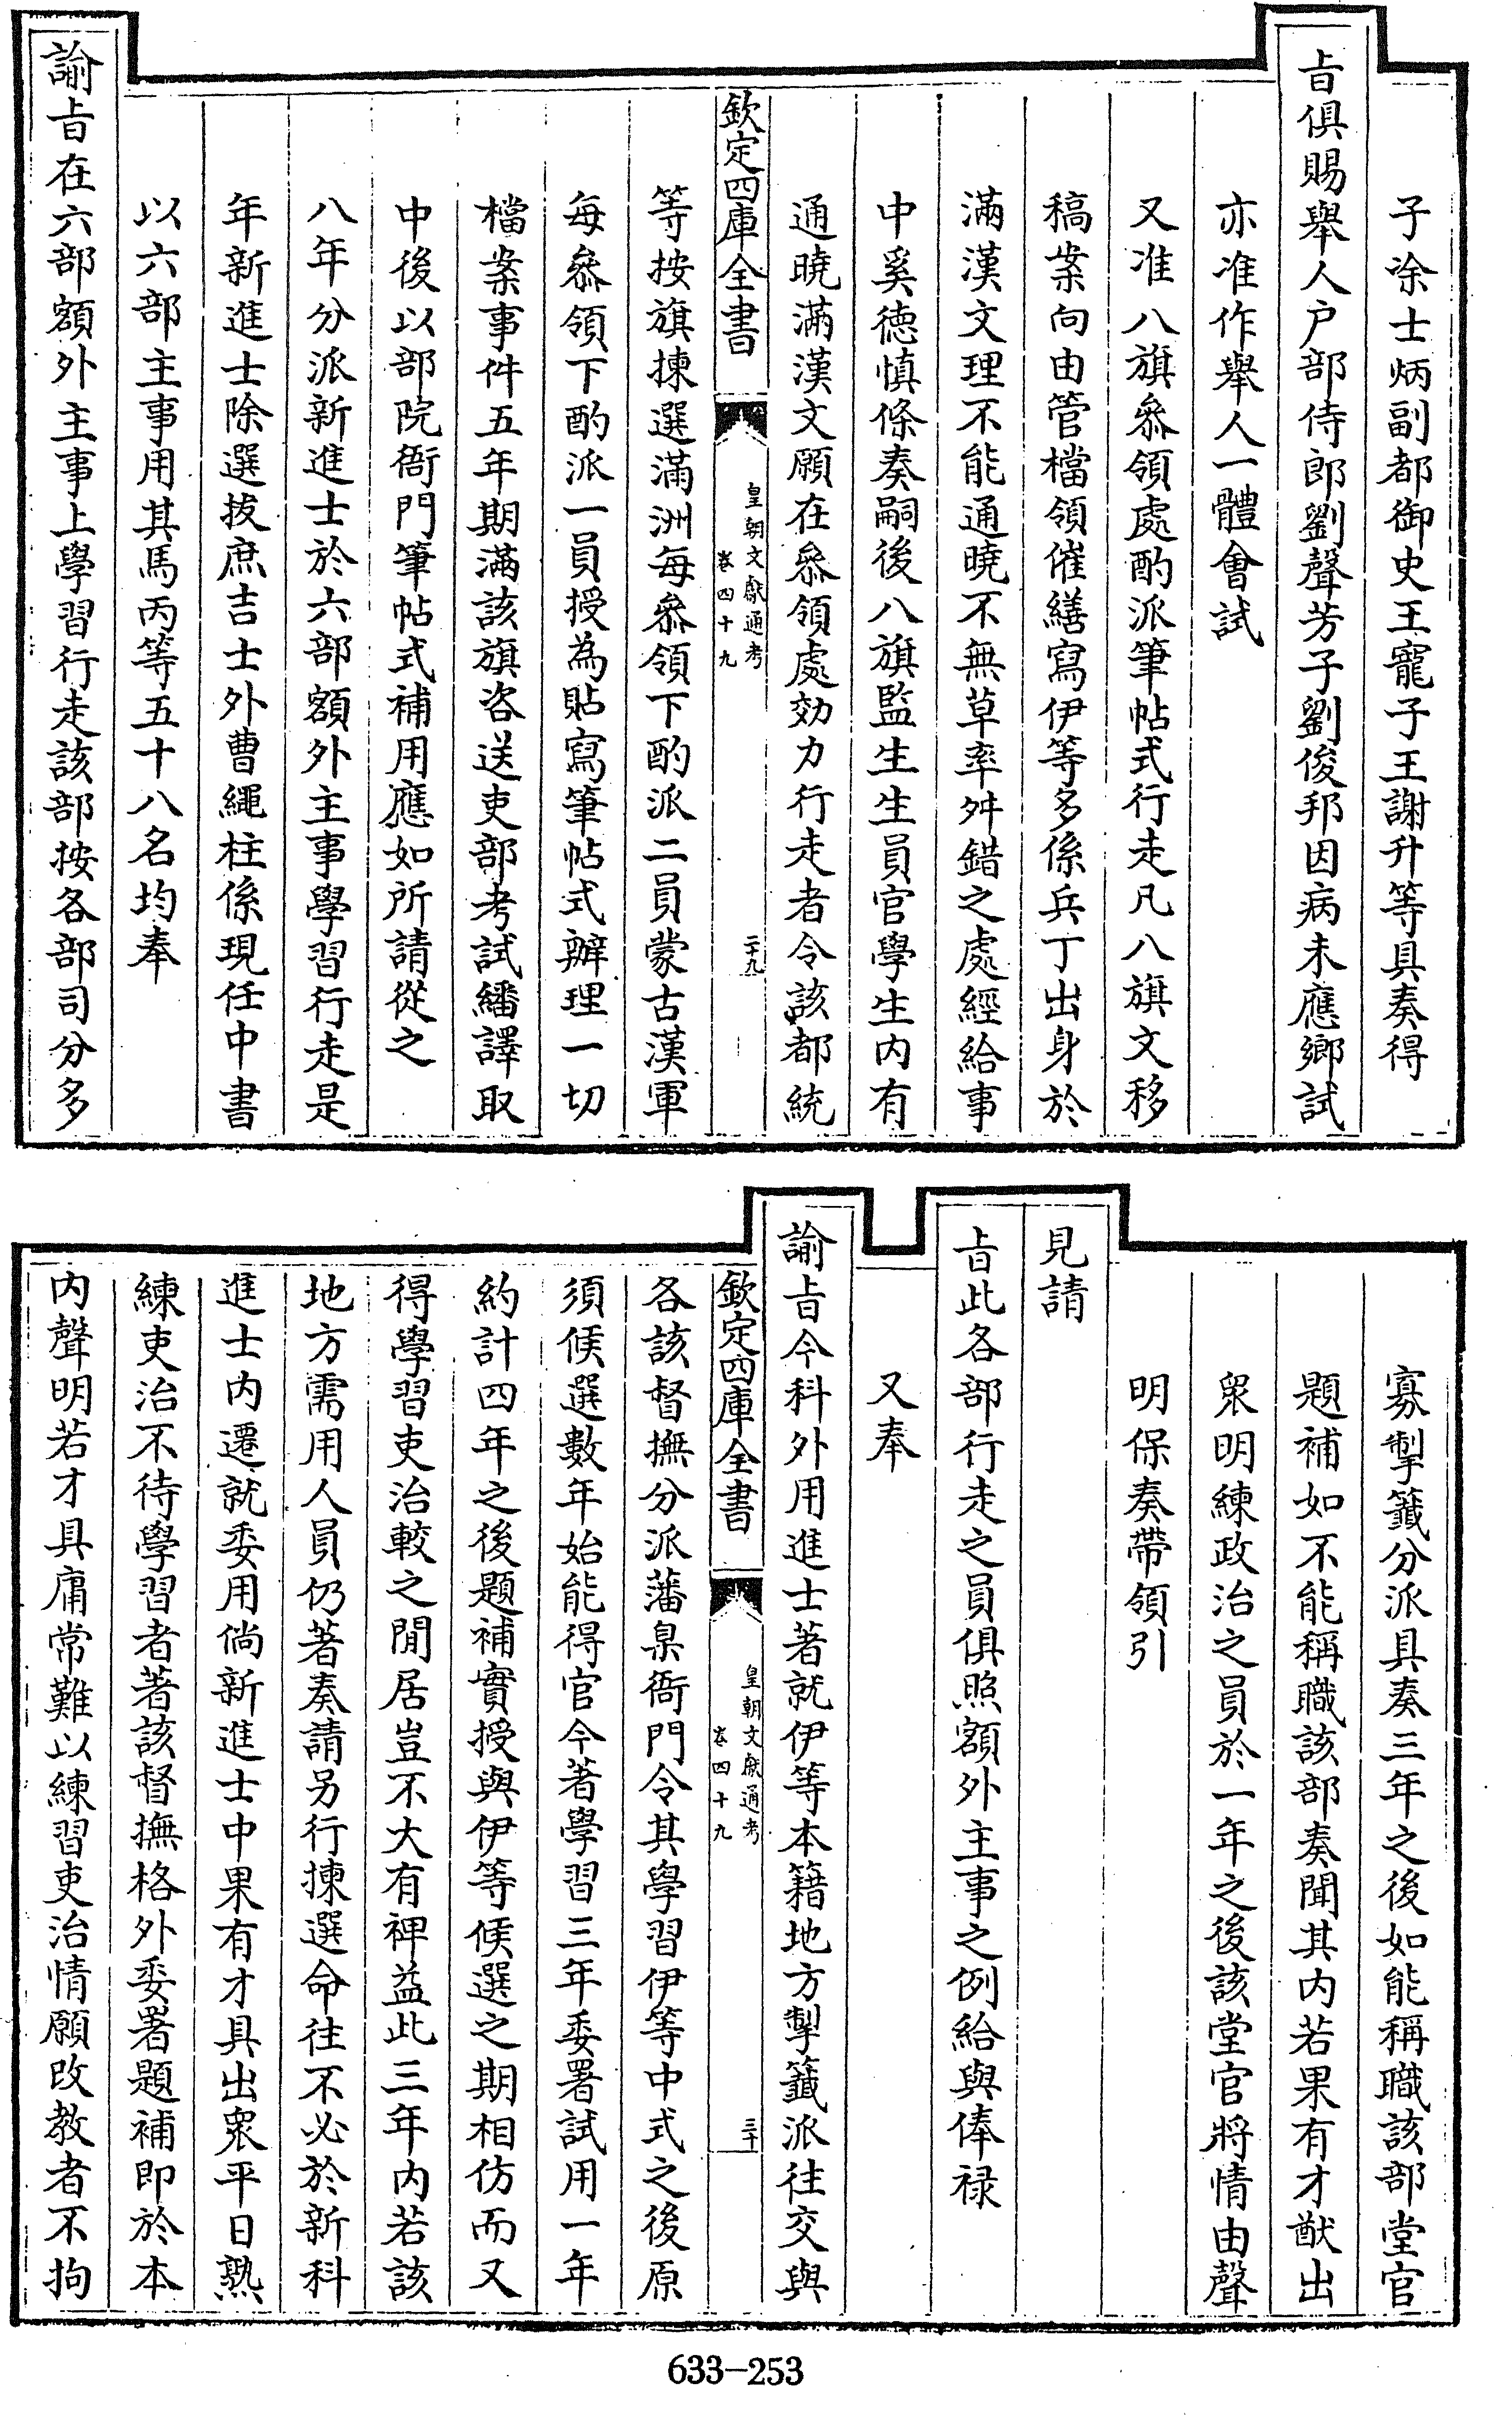 子涂士炳副都御史王寵子王謝升等具奏得
旨俱賜舉人户部侍郎劉聲芳子劉俊邦因病未應鄉試
亦准作舉人一體會試
又准八旗叅領處酌派筆帖式行走凡八旗文移
稿案向由管檔領催繕寫伊等多係兵丁出身於
滿漢文理不能通曉不無草率舛錯之處經給事
中奚德慎條奏嗣後八旗監生生員官學生内有
通曉滿漢文願在叅領處効力行走者令該都統
欽定四庫全書
皇朝文獻通考
卷四十九
二十九
等按旗揀選滿洲每叅領下酌派二員蒙古漢軍
每叅領下酌派一員授為貼寫筆帖式辦理一切
檔案事件五年期滿該旗咨送吏部考試繙譯取
中後以部院衙門筆帖式補用應如所請從之
八年分派新進士於六部額外主事學習行走是
年新進士除選拔庶吉士外曹繩柱係現任中書
以六部主事用其馬丙等五十八名均奉
諭旨在六部額外主事上學習行走該部按各部司分多
寡掣籤分派具奏三年之後如能稱職該部堂官
題補如不能稱職該部奏聞其内若果有才猷出
衆明練政治之員於一年之後該堂官將情由聲
明保奏帶領引
見請
旨此各部行走之員俱照額外主事之例給與俸禄
又奉
諭旨今科外用進士著就伊等本籍地方掣籤派往交與
欽定四庫全書
皇朝文獻通考
卷四十九
三十
各該督撫分派藩臬衙門令其學習伊等中式之後原
須候選數年始能得官今著學習三年委署試用一年
約計四年之後題補實授與伊等候選之期相仿而又
得學習吏治較之閒居豈不大有裨益此三年内若該
地方需用人員仍著奏請另行揀選命往不必於新科
進士内遷就委用倘新進士中果有才具出衆平日熟
練吏治不待學習者著該督撫格外委署題補即於本
内聲明若才具庸常難以練習吏治情願改教者不拘
633-253